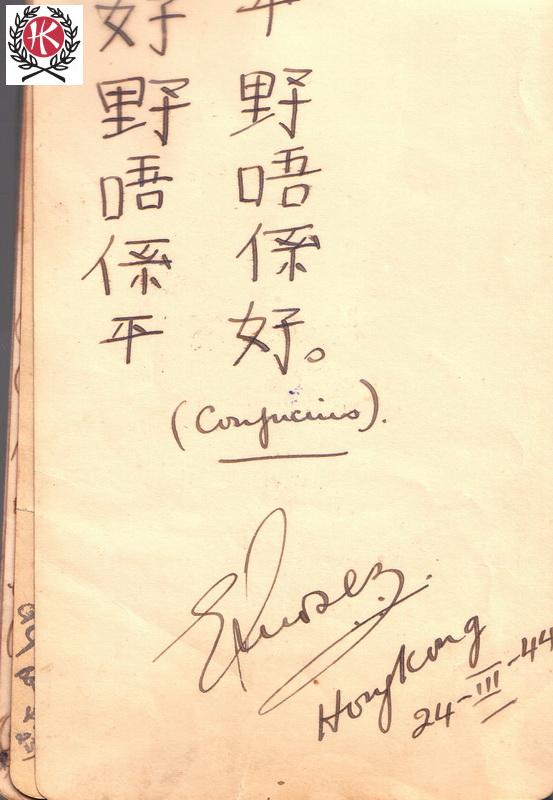 HK
好野唔係平
平野唔係好。
(Confucius).
Hongkong
24-III-44